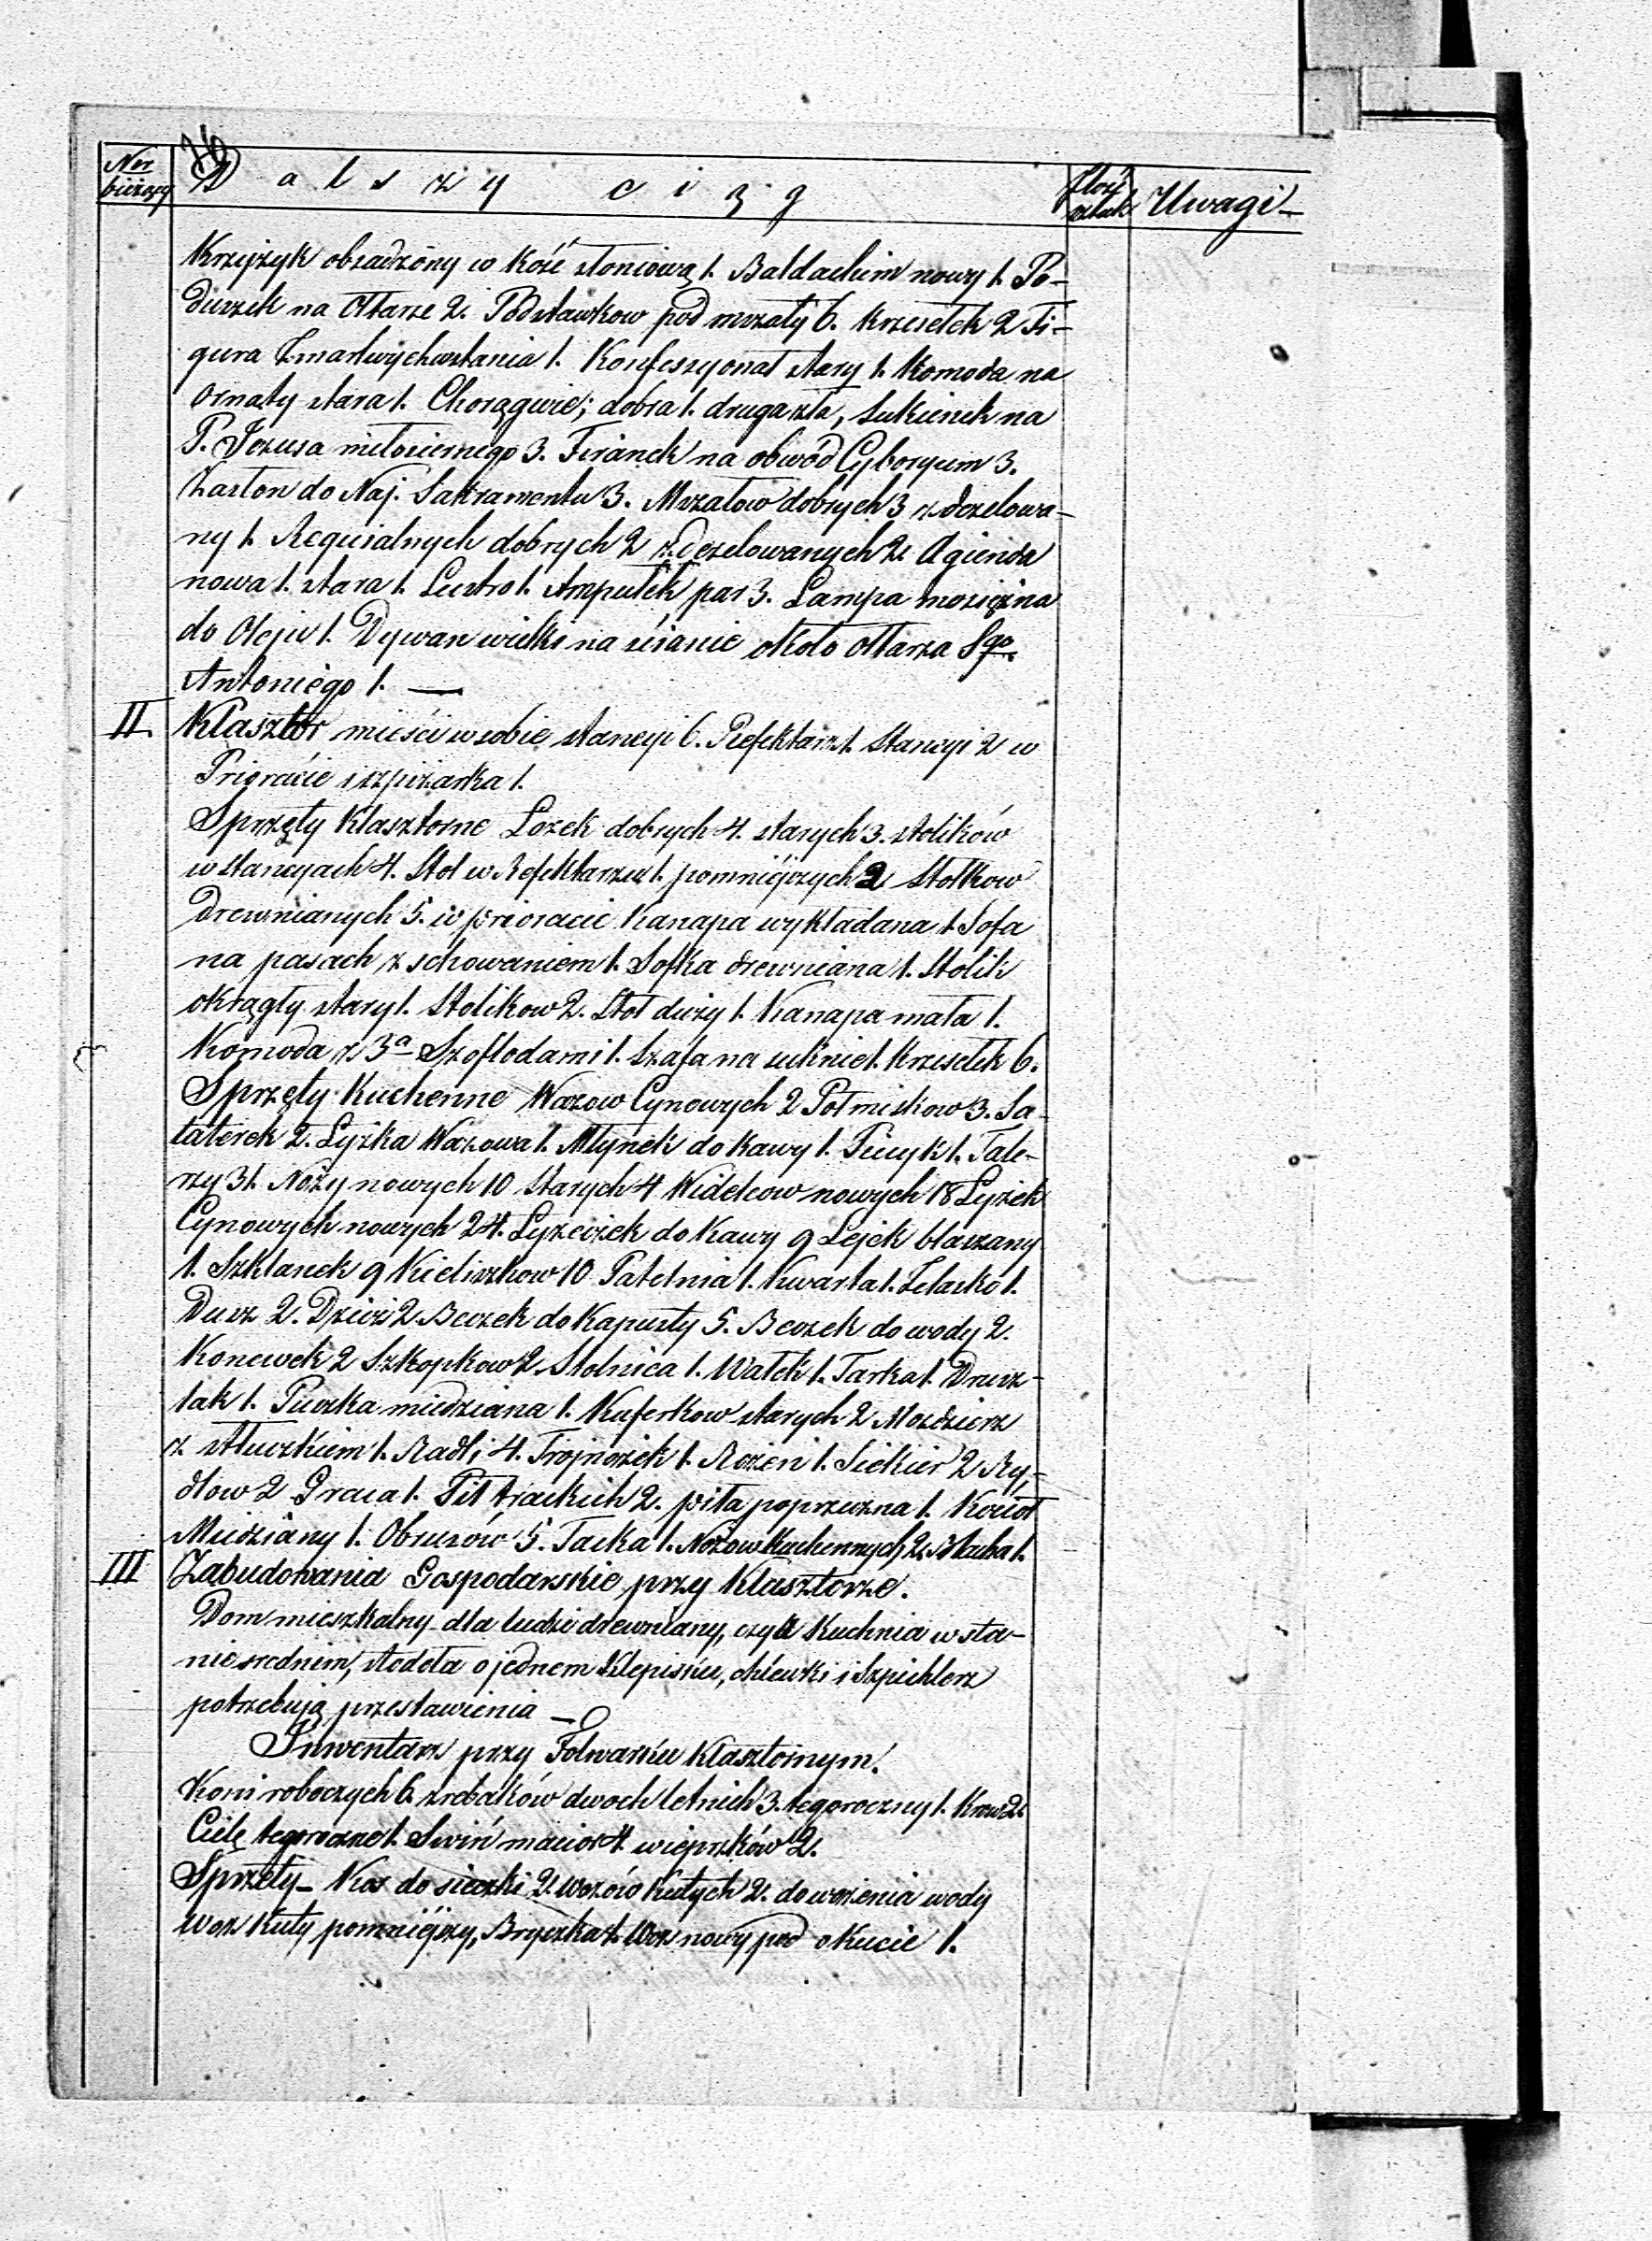 Nr bieżący
D a l s z y c i ą g
Ilość sztuk
Uwagi
Krzyżyk obsadzony w Kość słoniową 1. Baldachim nowy 1. Po-
duszek na Ołtarze 2. Podstawkow pod mszały 6. Krzesełek 2 Fi-
gura Zmartwychwstania 1. Konfessyonał stary 1. Komoda na
Ornaty stara 1. Chorągwie; dobra 1. druga zła, Sukienek na
P. Jezusa miłosiernego 3. Firanek na obwód Cyboryum 3.
Zasłon do Naj. Sakramentu 3. Mszałow dobrych 3 zdezelowa-
ny 1. Requialnych dobrych 2 zdezelowanych 2. Agienda
nowa 1. stara 1. Lustro 1. Ampułek par 3. Lampa mosiężna
do Oleju 1. Dywan wielki na ścianie około ołtarza Sgo
Antoniego 1. —
II. Klasztor mieści w sobie stancyi 6. Refektarz 1. Stancyi 2 w
Prioracie i szpiżarka 1.
Sprzęty Klasztorne Lozek dobrych 4. starych 3. stolików
w stancyach 4. Stoł w Refektarzu 1. pomniéjszych 2 Stołkow
Drewnianych 5. w prioracie Kanapa wykładana 1. Sofa
na pasach z schowaniem 1. Sofka drewniana 1. Stolik
okrągły stary 1. Stolikow 2. Stoł duży 1. Kanapa mała 1.
Komoda z 3a Szoflodami 1. Szafa na suknie 1. Krzesełek 6.
Sprzęty Kuchenne Wazow Cynowych 2 Połmiskow 3. Sa-
laterek 2. Lyżka Wazowa 1. Młynek do Kawy 1. Piecyk 1. Tale-
rzy 31. Noży nowych 10 starych 4 Widelcow nowych 18 Lyżek
Cynowych nowych 24. Lyżeczek do Kawy 9 Lejek blaszany
1. Szklanek 9 Kieliszkow 10 Patelnia 1. Kwarta 1. Zelasko 1.
Dusz 2. Dzieży 2. Beczek do Kapusty 5. Beczek do wody 2.
Konewek 2 Szkopkow 2. Stolnica 1. Wałek 1. Tarka 1. Drusz-
lak 1. Puszka miedziana 1. Kuferkow starych 2 Mozdzierz
z Tłuczkiem 1. Radli 4. Trojnożek 1. Rożen 1. Siekier 2 Ry-
dlow 2 Graca 1. Pił trackich 2. piła poprzeczna 1. Kocioł
Miedziany 1. Obrusów 5. Tacka 1. Nożow Kuchennych 2. Blacha 1.
III Zabudowania Gospodarskie przy Klasztorze.
Dom mieszkalny dla ludzi drewniany, czyli Kuchnia w sta-
nie srednim, stodoła o jednem Klepisku, chlewki i Szpichlerz
potrzebują przestawienia —
Inwentarz przy Folwarku Klasztornym.
Koni roboczych 6. zrebaków dwoch letnich 3. tegoroczny 1. Krow 2.
Cielę tegoroczne 1. Swiń macior 4 wieprzków 2.
Sprzęty – Kos do sieczki 2. wozów Kutych 2. do wożenia wody
woz Kuty pomniéjszy, Bryczka 1. Woz nowy pod okucie 1.